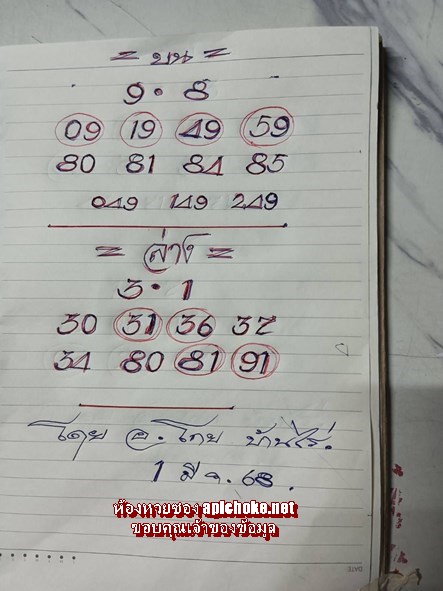 = บน =
9 • 8
09 19 49 59
80 81 84 85
049 149 249
= ล่าง =
3 • 1
30 31 36 37
34 80 81 91
โดย อ. โทย บ้านไร่.
1 มี.ค. 68.
ห้องหวยซอง apichoke.net
ขอบคุณเจ้าของข้อมูล
DATE